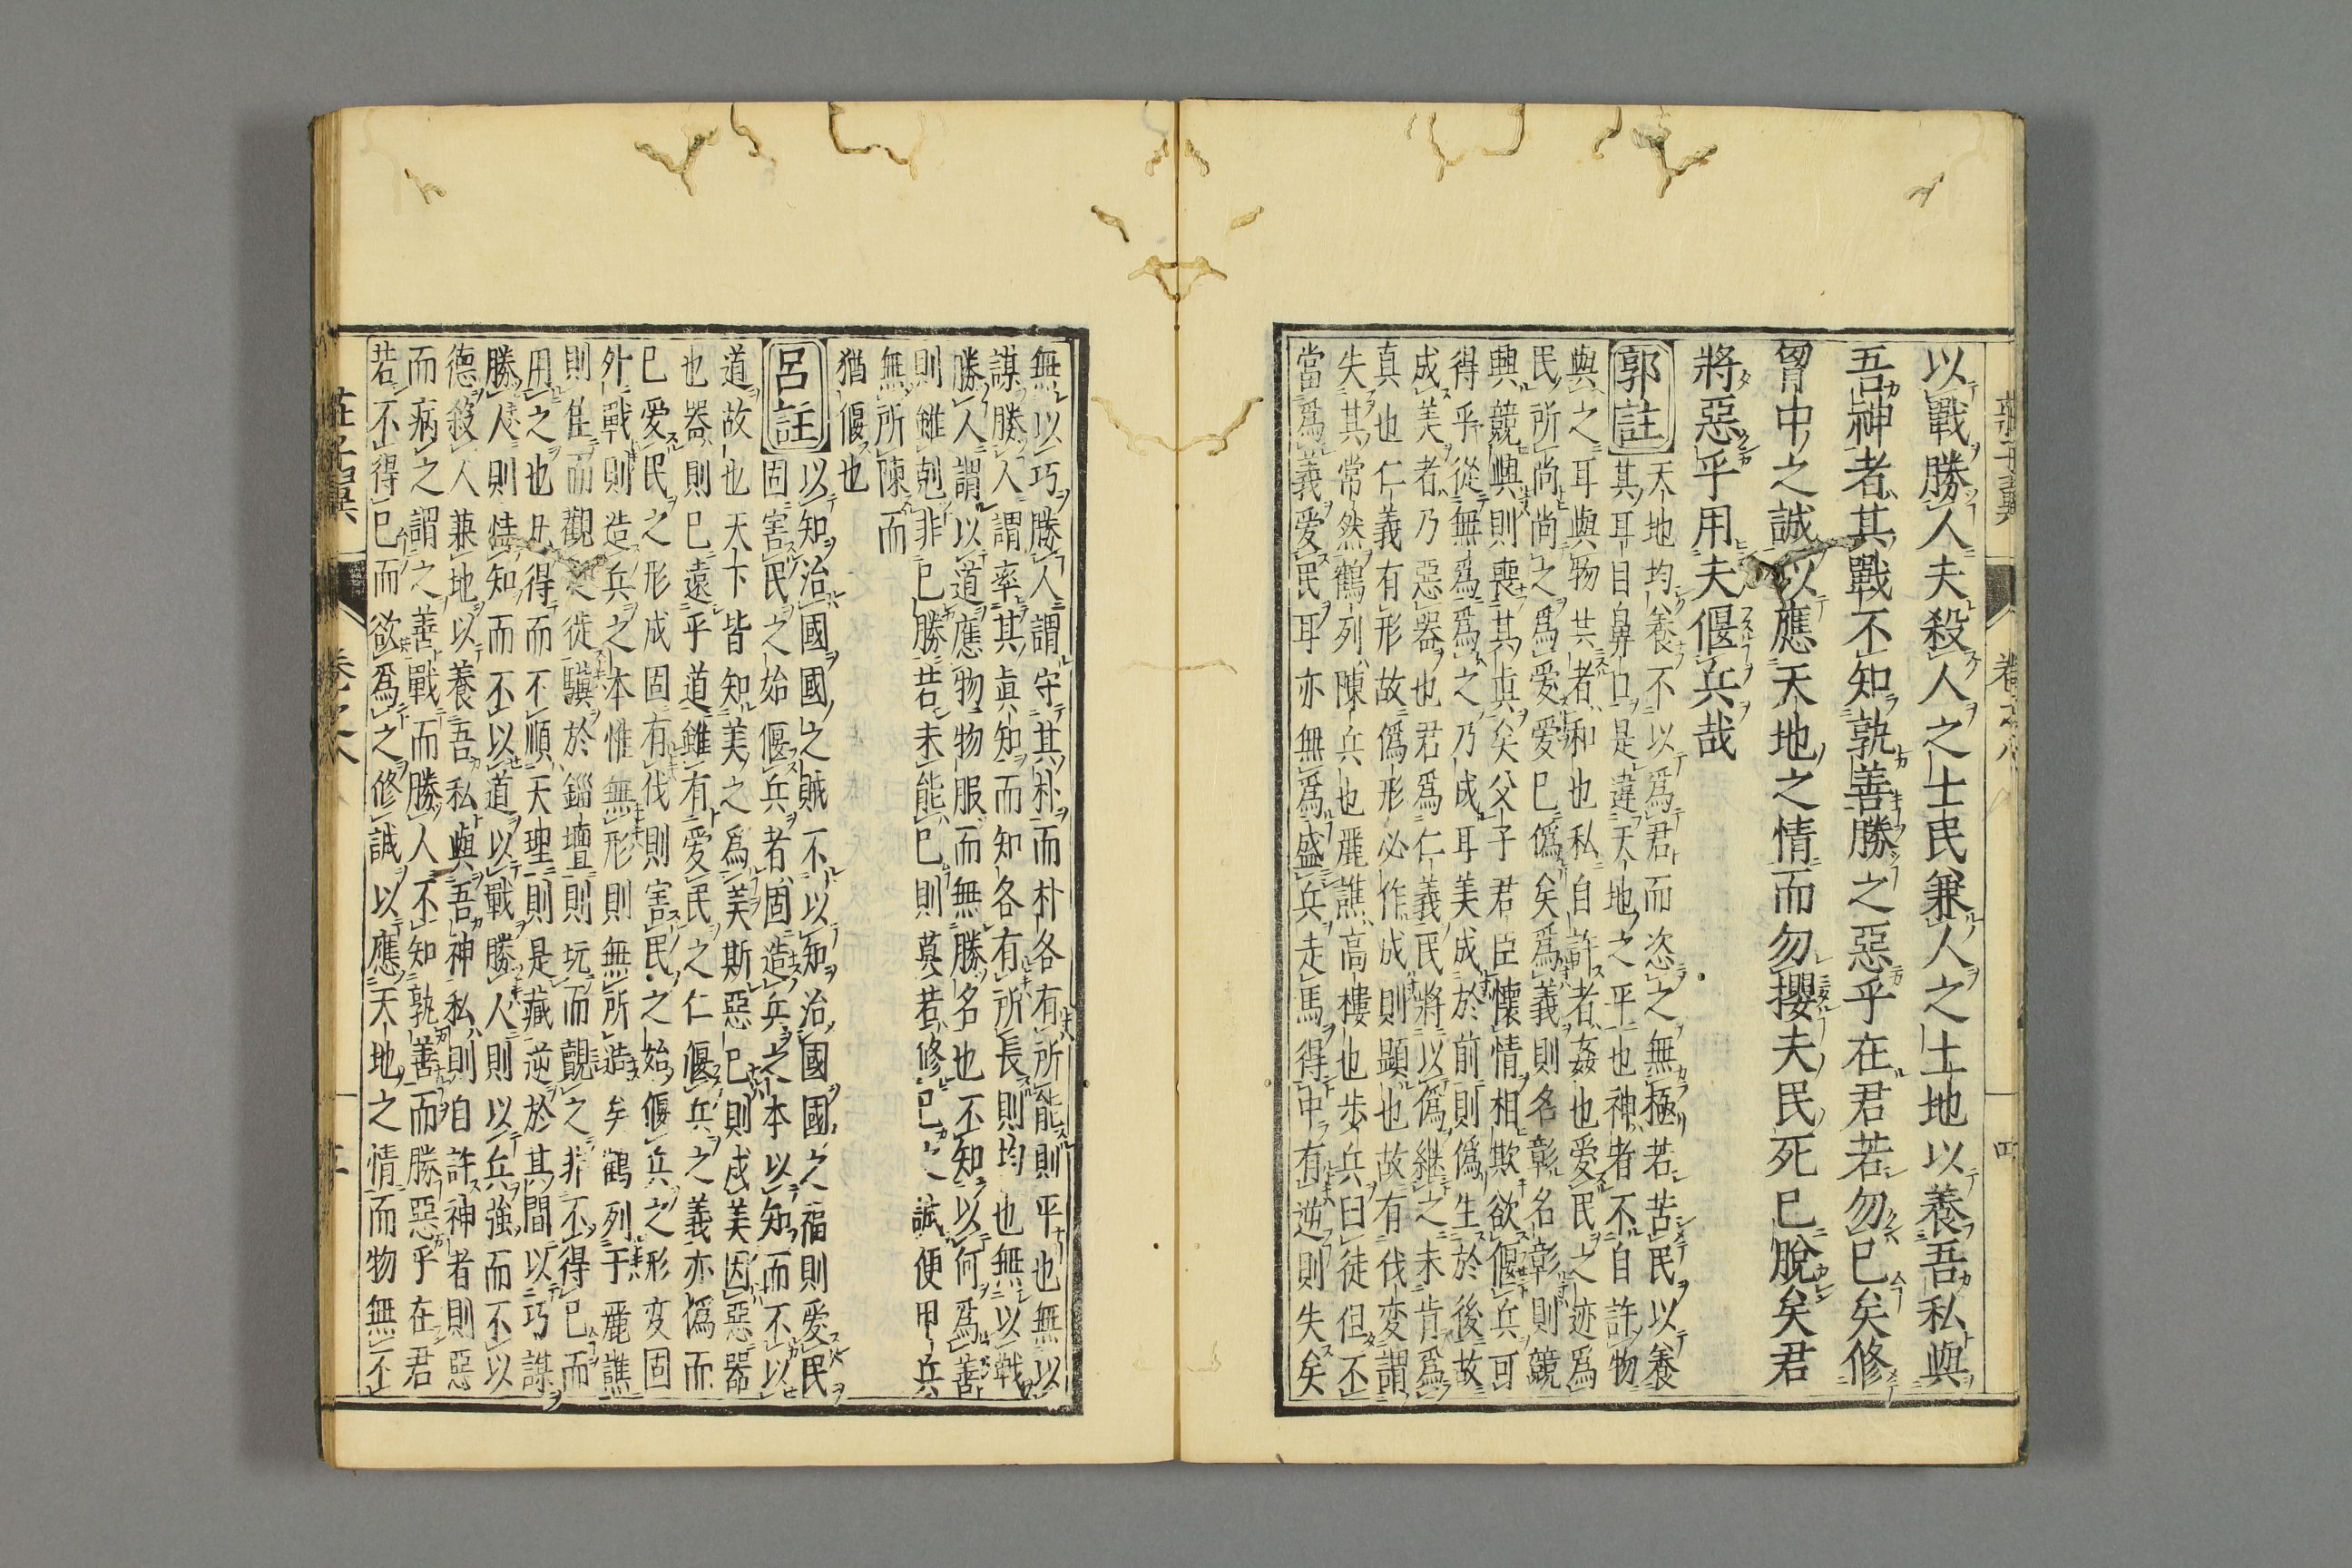 以戰勝人夫殺人之士民兼人之土地以養吾私與
吾神者其戰不知孰善勝之惡乎在君若勿已矣修
胷中之誠以應天地之情而勿攖夫民死已脫矣君
將惡乎用夫偃兵哉
郭註
天地均養不以爲君而恣之無極若苦民以養
其耳目鼻口是違天地之平也神者不自許物
與之耳與物共者和也私自許者姦也愛民之迹爲
民所尚尚之爲愛愛已僞矣爲義則名彰名彰則競
興競興則喪其眞矣父子君臣懷情相欺欲偃兵可
得乎從無爲爲之乃成耳美成於前則僞生於後故
成美者乃惡器也君爲仁義民將以僞継之未肯爲
真也仁義有形故僞形必作成則顕也故有伐変謂
失其常然鶴列陳兵也麗譙高樓也步兵曰徒但不
當爲義愛民耳亦無爲盛兵走馬得中有逆則失矣
無以巧勝人謂守其朴而朴各有所能則平也無以
謀勝人謂率其眞知而知各有所長則均也無以戰
勝人謂以道應物物服而無勝名也不知以何爲善
則雖剋非已勝若未能已則莫若修已之誠便甲兵
無所陳而
猶偃也
呂註
以知治國國之賊不以知治國國之福則愛民
固害民之始偃兵者固造兵之本以知而不以
道故也天下皆知美之爲美斯惡已則成美因惡器
也器則已遠乎道雖有愛民之仁偃兵之義亦僞而
已愛民之形成固有伐則害民之始偃兵之形変固
外戰則造兵之本惟無形則無所造矣鶴列于麗譙
則隹而觀之徒驥於錙壇則玩而覿之非不得已而
用之也毋得而不順天理則是藏逆於其間以巧謀
勝人則恃知而不以道以戰勝人則以兵強而不以
德殺人兼地以養吾私與吾神私則自許神者則惡
而病之謂之善戰而勝人不知孰善而勝惡乎在君
若不得已而欲爲之修誠以應天地之情而物無不